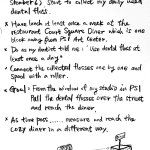 Start to collect my daily used
dental floss.
* Have lunch at least once a week at the
restaurant Court Square Diner which is one
block away from PS1 Art Center.
* Do as my dentist told me: "Use dental floss at
least once a day."
* Connect the collected flosses one by one and
spool with a roller.
* Goal: From the window of my studio in PS1
Pull the dental flosses over the street
and reach the diner.
* As time pass ...... measure and reach the
cozy diner in a different way.